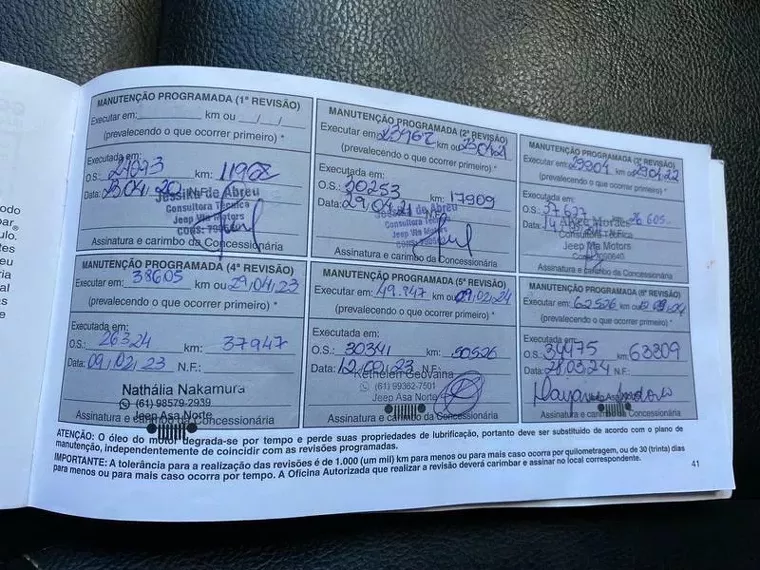 MANUTENÇÃO PROGRAMADA (1ª REVISÃO)
Executar em: km ou / /
(prevalecendo o que ocorrer primeiro) *
Executada em:
O.S.: km: 11962
Data: 23.04.20 N.F.:
Jessika de Abreu
Consultora Técnica
Jeep Via Motors
Assinatura e carimbo da Concessionária
MANUTENÇÃO PROGRAMADA (2ª REVISÃO)
Executar em: 23962 km ou 23.04.21
(prevalecendo o que ocorrer primeiro) *
Executada em:
O.S.: 30253 km: 17909
Data: 29.04.21 N.F.:
de Abreu
Consultora Técnica
Jeep Via Motors
Assinatura e carimbo da Concessionária
MANUTENÇÃO PROGRAMADA (3ª REVISÃO)
Executar em: 29904 km ou 29.04.22
(prevalecendo o que ocorrer primeiro) *
Executada em:
O.S.: 37677 km: 26605
Data: N.F.:
Jeep Via Motors
Assinatura e carimbo da Concessionária
MANUTENÇÃO PROGRAMADA (4ª REVISÃO)
Executar em: 38605 km ou 29.04.23
(prevalecendo o que ocorrer primeiro) *
Executada em:
O.S.: 26324 km: 37947
Data: 09.02.23 N.F.:
Nathália Nakamura
(61) 98579-2939
Jeep Asa Norte
Assinatura e carimbo da Concessionária
MANUTENÇÃO PROGRAMADA (5ª REVISÃO)
Executar em: 49.947 km ou 09.02.24
(prevalecendo o que ocorrer primeiro) *
Executada em:
O.S.: 30341 km: 50526
Data: 12.09.23 N.F.:
Kethelen Geovana
(61) 99362-7501
Jeep Asa Norte
Assinatura e carimbo da Concessionária
MANUTENÇÃO PROGRAMADA (6ª REVISÃO)
Executar em: 62526 km ou
(prevalecendo o que ocorrer primeiro) *
Executada em:
O.S.: 34475 km: 63209
Data: 21.03.24 N.F.:
Jeep Asa Norte
Assinatura e carimbo da Concessionária
ATENÇÃO: O óleo do motor degrada-se por tempo e perde suas propriedades de lubrificação, portanto deve ser substituído de acordo com o plano de
manutenção, independentemente de coincidir com as revisões programadas.
IMPORTANTE: A tolerância para a realização das revisões é de 1.000 (um mil) km para menos ou para mais caso ocorra por quilometragem, ou de 30 (trinta) dias
para menos ou para mais caso ocorra por tempo. A Oficina Autorizada que realizar a revisão deverá carimbar e assinar no local correspondente.
41